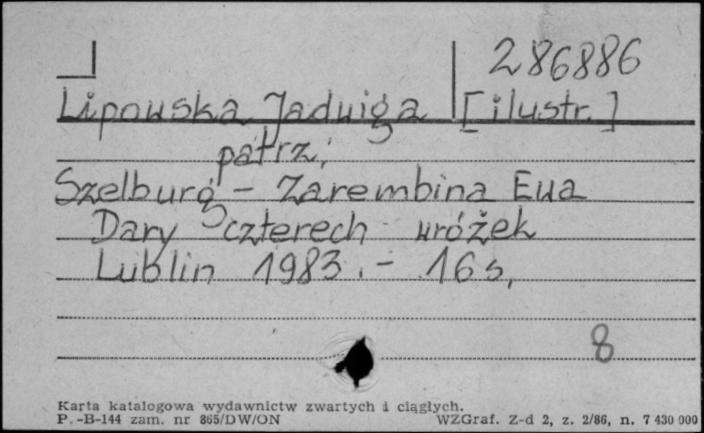 286886
Lipowska Jadwiga [ilustr.]
patrz:
Szelburg - Zarembina Ewa
Dary czterech wróżek
Lublin 1983. - 16 s.
8
Karta katalogowa wydawnictw zwartych i ciągłych.
P.-B-144 zam. nr 865/DW/ON WZGraf. Z-d 2, z. 2/86, n. 7 430 000